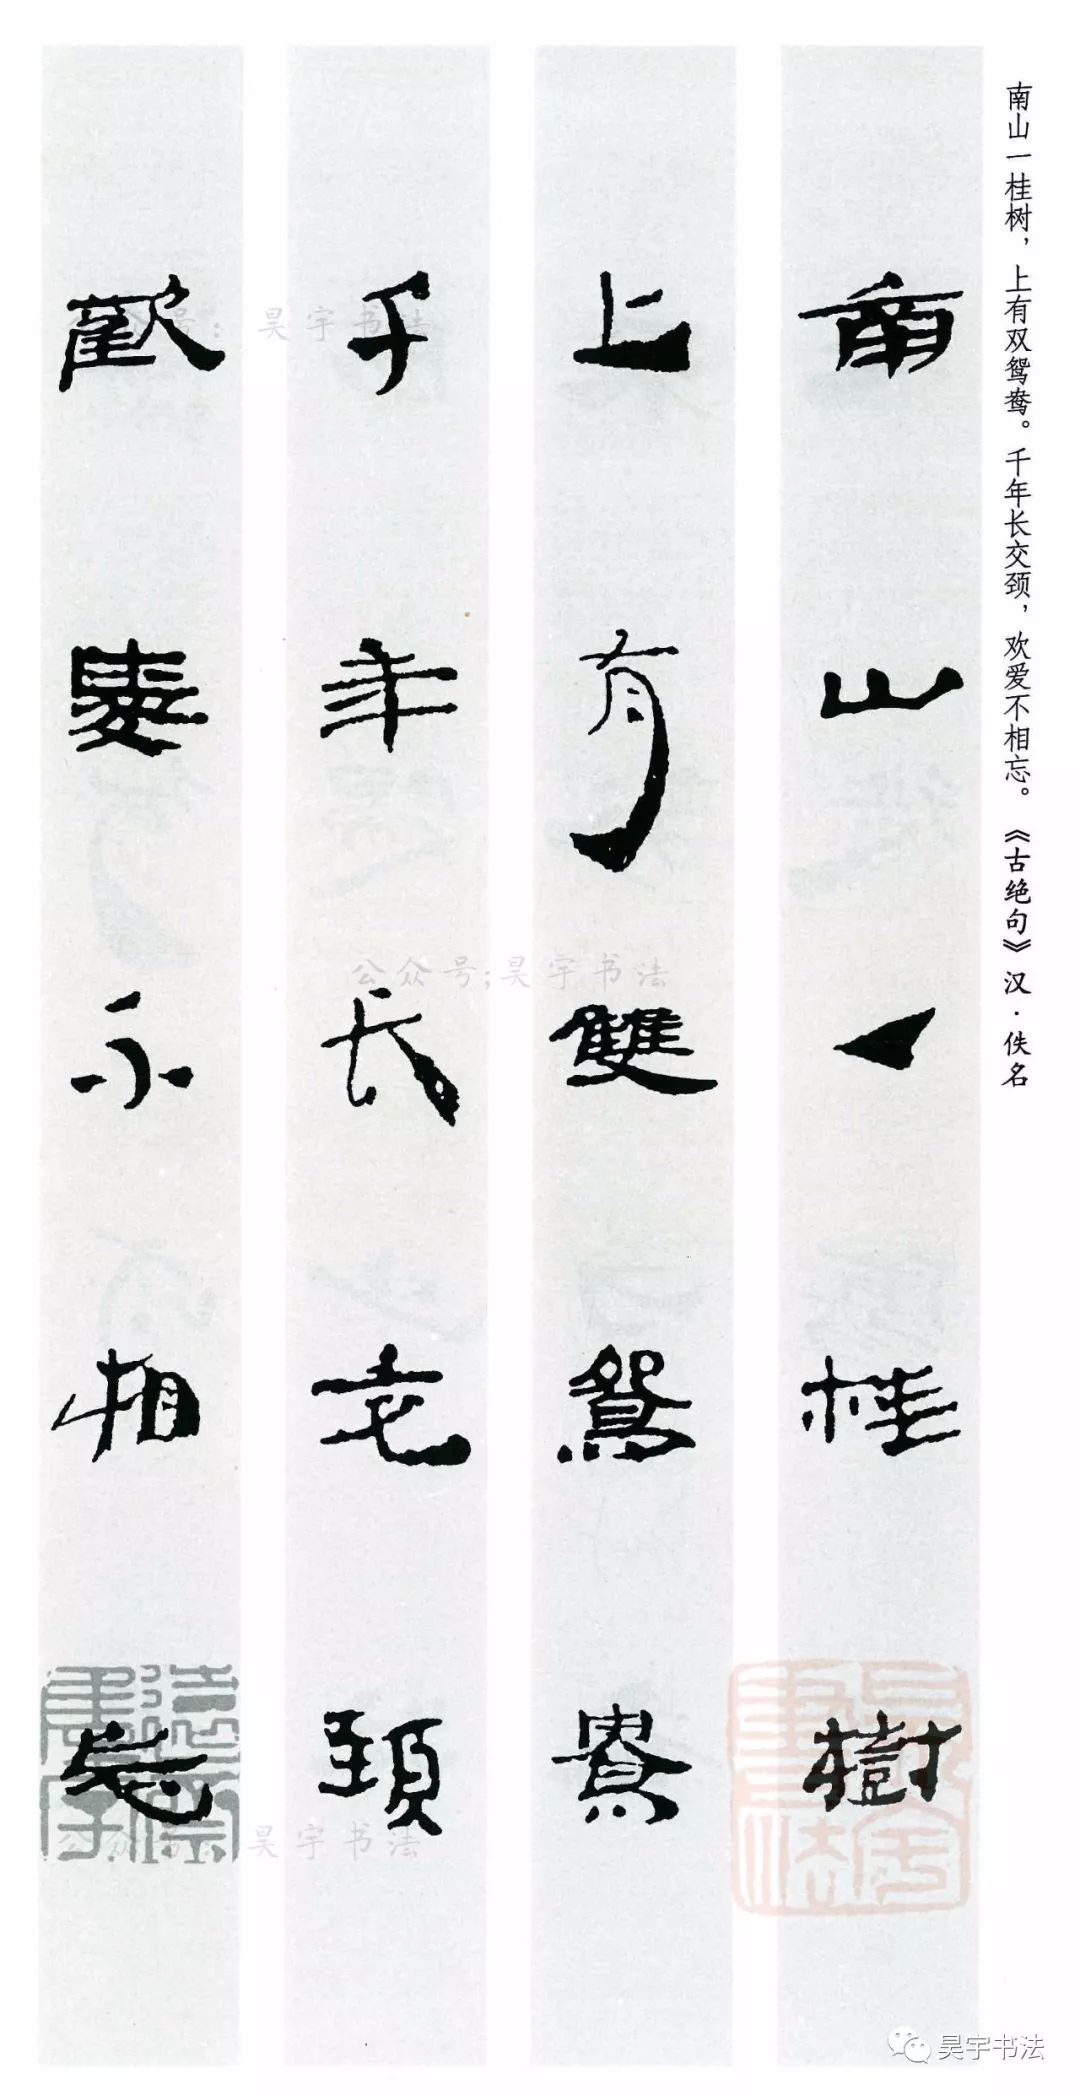 南山一桂树，上有双鸳鸯。千年长交颈，欢爱不相忘。《古绝句》汉·佚名
南山一桂樹
上有雙鴛鴦
千年長交頸
歡愛不相忘
公众号：昊宇书法
公众号;昊宇书法
公众号：昊宇书法
昊宇书法